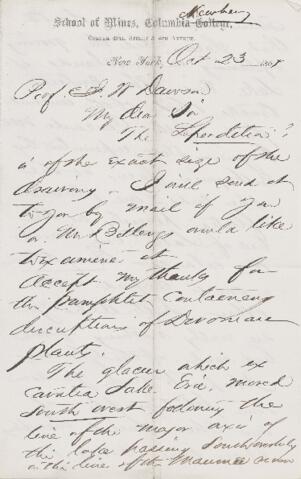 Newberry
School of Mines, Columbia College,
New York, Oct 23 186
Prof. J W Dawson
My Dear Sir
The Leperditia?
is of the exact size of the
drawing. I will send it
to you by mail if you
or Mr Billings would like
to examine it
Accept my thanks for
the pamphlet containing
descriptions of Devonian
plants.
The glacier which ex
cavated Lake Erie moved
south west following the
line of the major axis of
the lake passing southwardly
in the line of the Maumee river